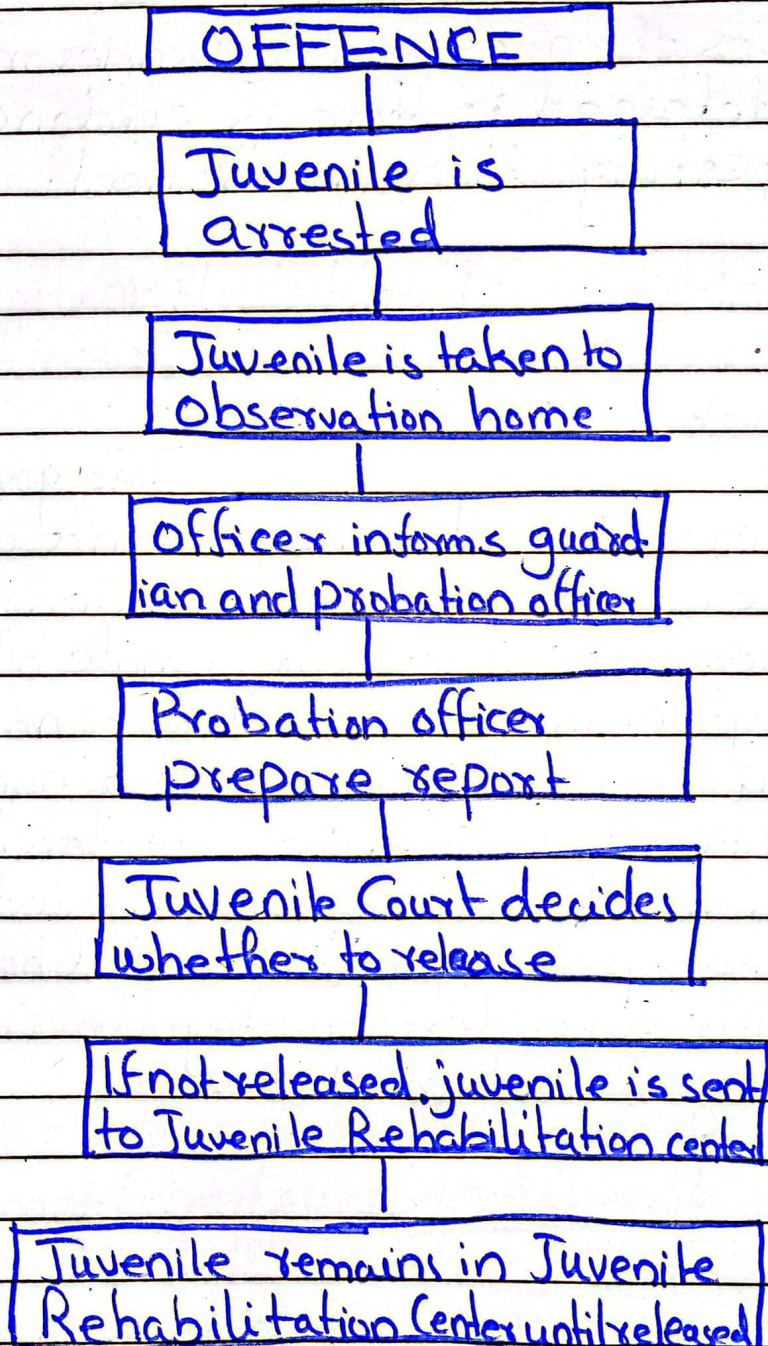 OFFENCE
Juvenile is
arrested
Juvenile is taken to
Observation home
Officer informs guard
ian and probation officer
Probation officer
prepare report
Juvenile Court decides
whether to release
If not released, juvenile is sent
to Juvenile Rehabilitation center
Juvenile remains in Juvenile
Rehabilitation Center until released